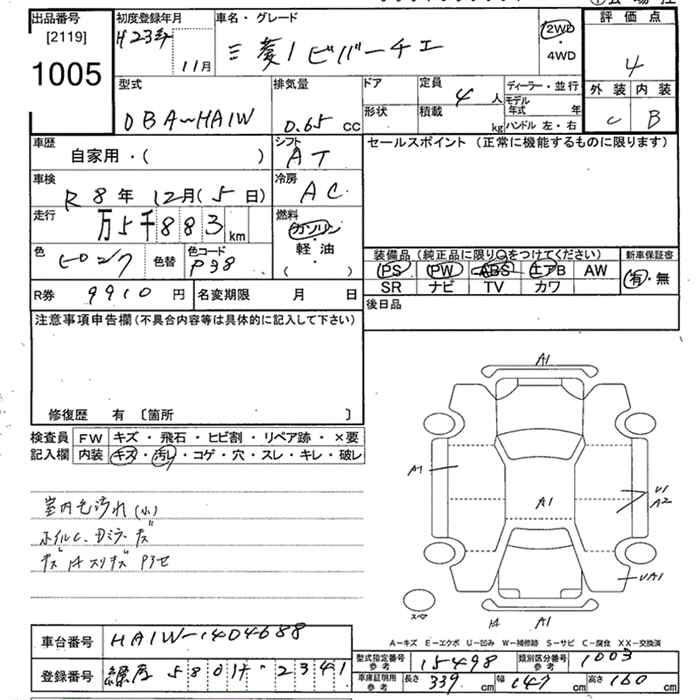 出品番号
[2119]
1005
初度登録年月
H23年
11月
車名・グレード
三菱 i ビバーチェ
2WD
・
4WD
評価点
4
外装 内装
C B
型式
DBA-HA1W
排気量
0.65 CC
ドア
形状
定員
4 人
積載
kg
ディーラー・並行
モデル年式 年
ハンドル 左・右
車歴
自家用・( )
シフト
AT
車検
R 8 年 12月(5日)
冷房
AC
走行
万5千883 km
燃料
ガソリン
軽・油
( )
色
ピンク
色替
色コード
P38
R券 9910 円
名変期限 月 日
セールスポイント (正常に機能するものに限ります)
装備品(純正品に限り○をつけてください)
新車保証書
PS PW ABS エアB AW
SR ナビ TV カワ
有・無
後日品
注意事項申告欄(不具合内容等は具体的に記入して下さい)
修復歴 有 〔箇所 〕
検査員記入欄
FW キズ・飛石・ヒビ割・リペア跡・×要
内装 キズ・汚レ・コゲ・穴・スレ・キレ・破レ
室内色汚れ(小)
A1
A1
A1
U1
A2
UA1
スペア
A1
A-キズ E-エクボ U-凹み W-補修跡 S-サビ C-腐食 XX-交換済
車台番号 HA1W-1404688
登録番号 練馬 580 け 2341
型式指定番号 参考 15498
類別区分番号 参考 1003
車庫証明用 参考 長さ 339 cm 幅 147 cm 高さ 160 cm